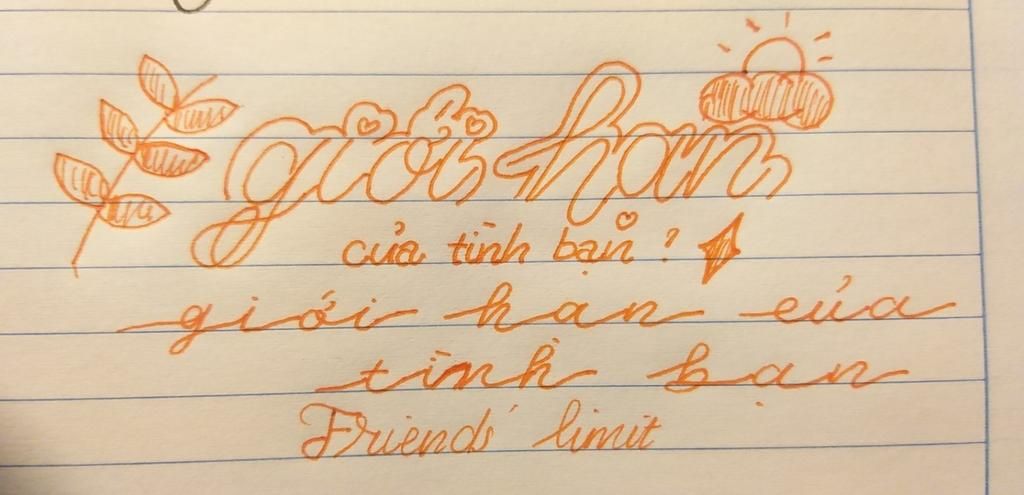 giới hạn
của tình bạn?
giới hạn của
tình bạn
Friends' limit